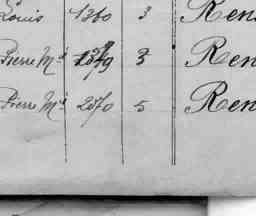 Louis 1360 3 Ren
Pierre Md 3 Ren
Pierre Md 2070 5 Ren